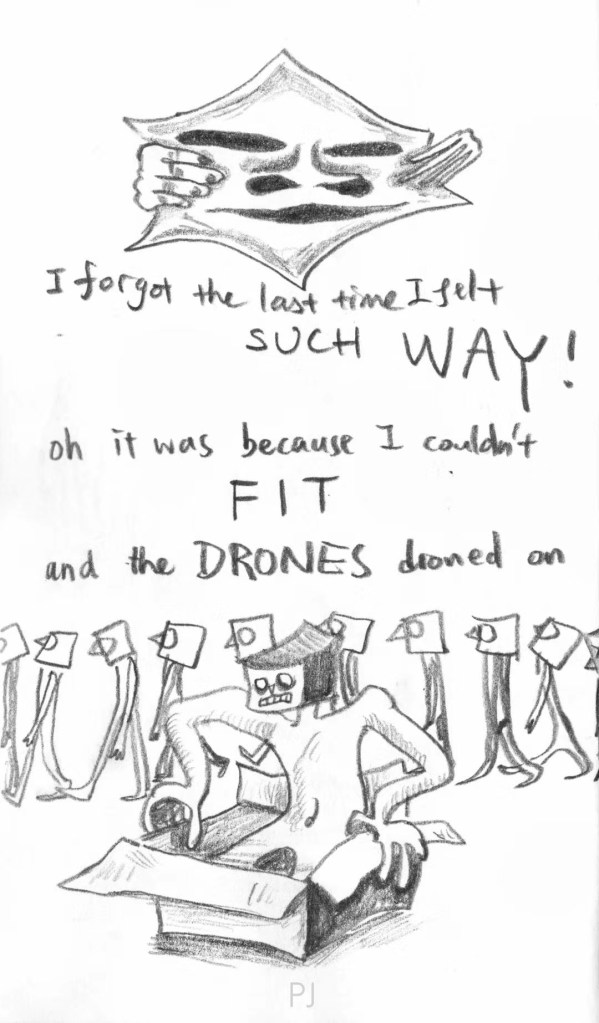 I forgot the last time I felt
SUCH WAY!
oh it was because I couldn't
FIT
and the DRONES droned on
PJ